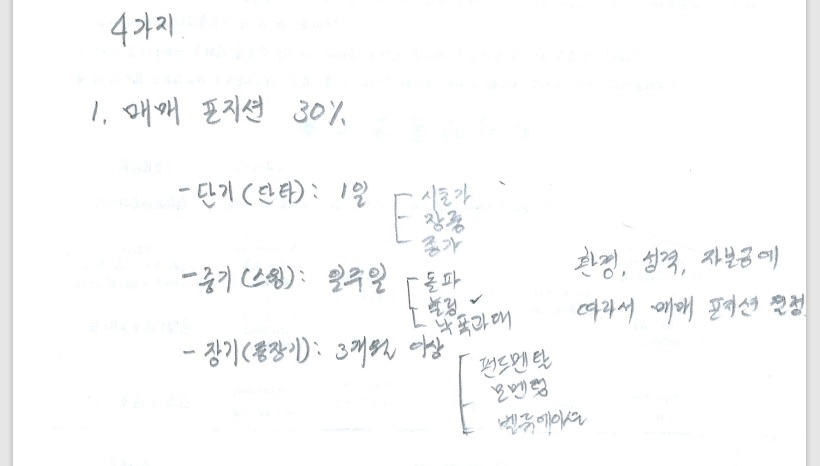 4가지
1. 매매 포지션 30%
- 단기(단타): 1일
시초가
장중
종가
- 중기(스윙): 일주일
돌파
눌림 ✓
낙폭과대
- 장기(중장기): 3개월 이상
펀드멘탈
모멘텀
벨류에이션
환경, 성격, 자본금에
따라서 매매 포지션 결정